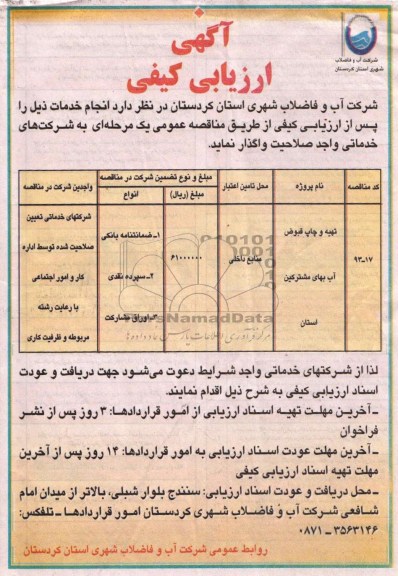 شرکت آب و فاضلاب
شهری استان کردستان
آگهی
ارزیابی کیفی
شرکت آب و فاضلاب شهری استان کردستان در نظر دارد انجام خدمات ذیل را
پس از ارزیابی کیفی از طریق مناقصه عمومی یک مرحله‌ای به شرکت‌های
خدماتی واجد صلاحیت واگذار نماید.
کد مناقصه
نام پروژه
محل تامین اعتبار
مبلغ و نوع تضمین شرکت در مناقصه
مبلغ (ریال)
انواع
واجدین شرکت در مناقصه
۹۳-۱۷
تهیه و چاپ قبوض
آب بهای مشترکین
استان
منابع داخلی
۶۱۰۰۰۰۰۰
۱ـ ضمانتنامه بانکی
۲ـ سپرده نقدی
۳ـ اوراق مشارکت
شرکتهای خدماتی تعیین
صلاحیت شده توسط اداره
کار و امور اجتماعی
با رعایت رشته
مربوطه و ظرفیت کاری
ParsNamadData
لذا از شرکتهای خدماتی واجد شرایط دعوت می‌شود جهت دریافت و عودت
اسناد ارزیابی کیفی به شرح ذیل اقدام نمایند.
ـ آخرین مهلت تهیه اسناد ارزیابی از امور قراردادها: ۳ روز پس از نشر
فراخوان
ـ آخرین مهلت عودت اسناد ارزیابی به امور قراردادها: ۱۴ روز پس از آخرین
مهلت تهیه اسناد ارزیابی کیفی
ـ محل دریافت و عودت اسناد ارزیابی: سنندج بلوار شبلی، بالاتر از میدان امام
شافعی شرکت آب و فاضلاب شهری کردستان امور قراردادها ـ تلفکس:
۰۸۷۱ ـ ۳۵۶۳۱۴۶
روابط عمومی شرکت آب و فاضلاب شهری استان کردستان